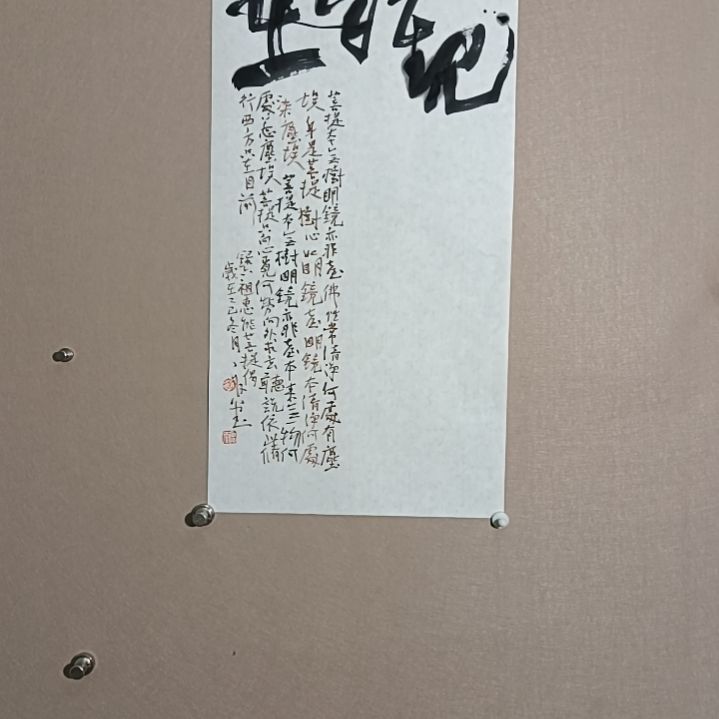 菩提本无樹明鏡亦非臺佛性常清淨何處有塵
埃 身是菩提樹心如明鏡臺明鏡本清淨何處
染塵埃 菩提本无樹明鏡亦非臺本來无一物何
處惹塵埃 菩提只向心覓何勞向外求玄聽說依此修
行西方只在目前
錄六祖惠能菩提偈
歲在乙巳冬月